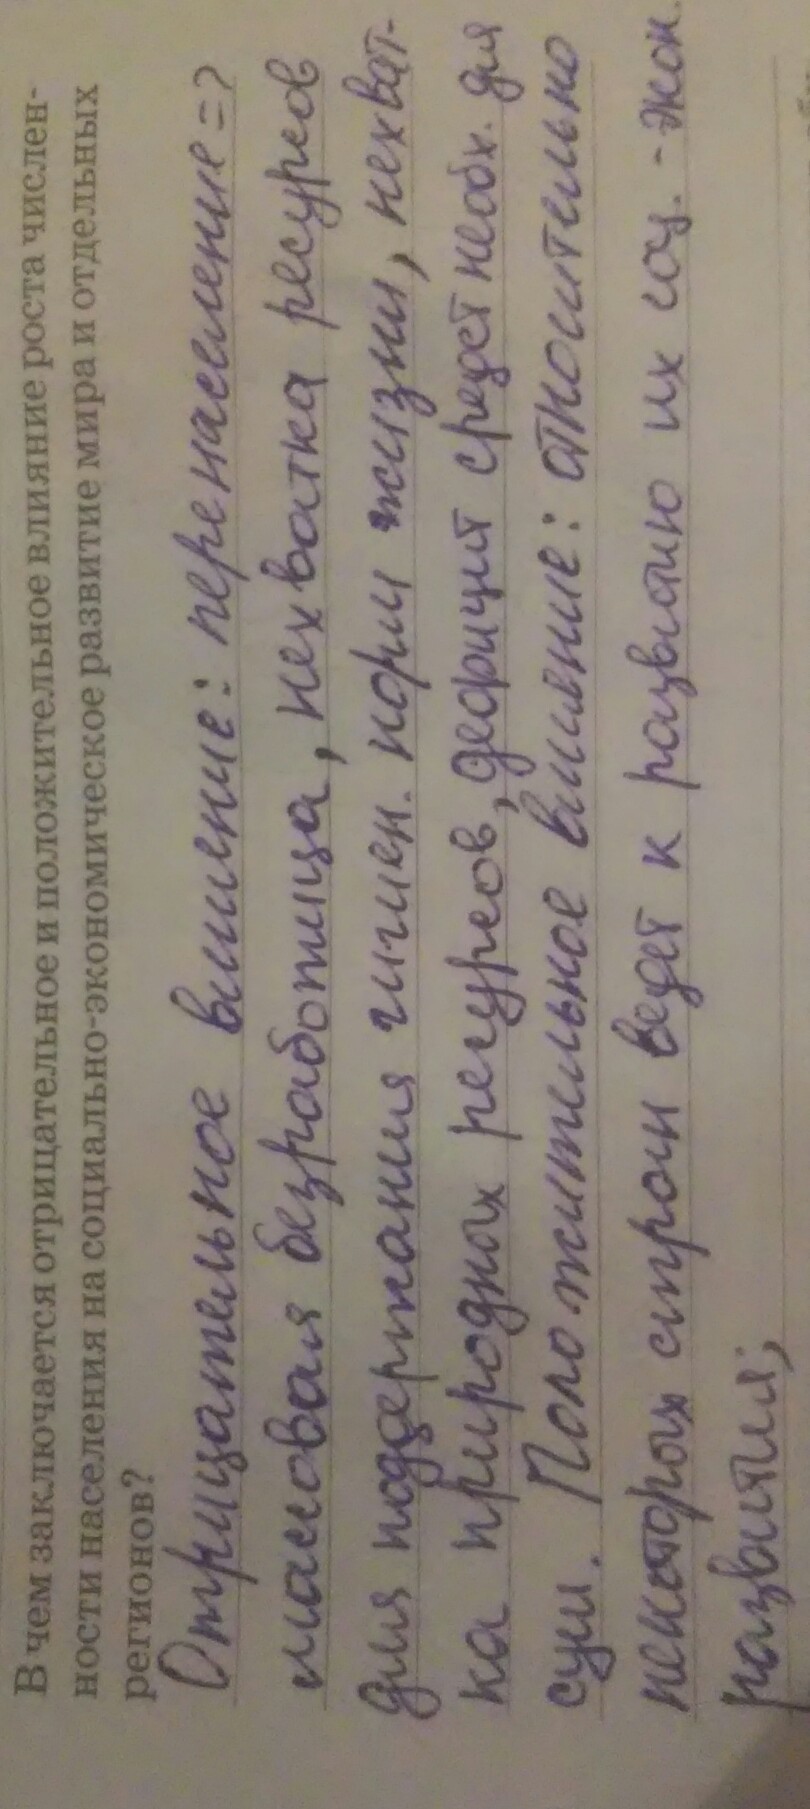 В чем заключается отрицательное и положительное влияние роста числен-
ности населения на социально-экономическое развитие мира и отдельных
регионов?
Отрицательное влияние: перенаселение =>
массовая безработица, нехватка ресурсов
для поддержания гигиен. норм жизни, нехват-
ка природных ресурсов, дефицит средст необх. для
сущ. Положительное влияние: относительно
некоторых стран ведет к развитию их соц. - экон.
развития;